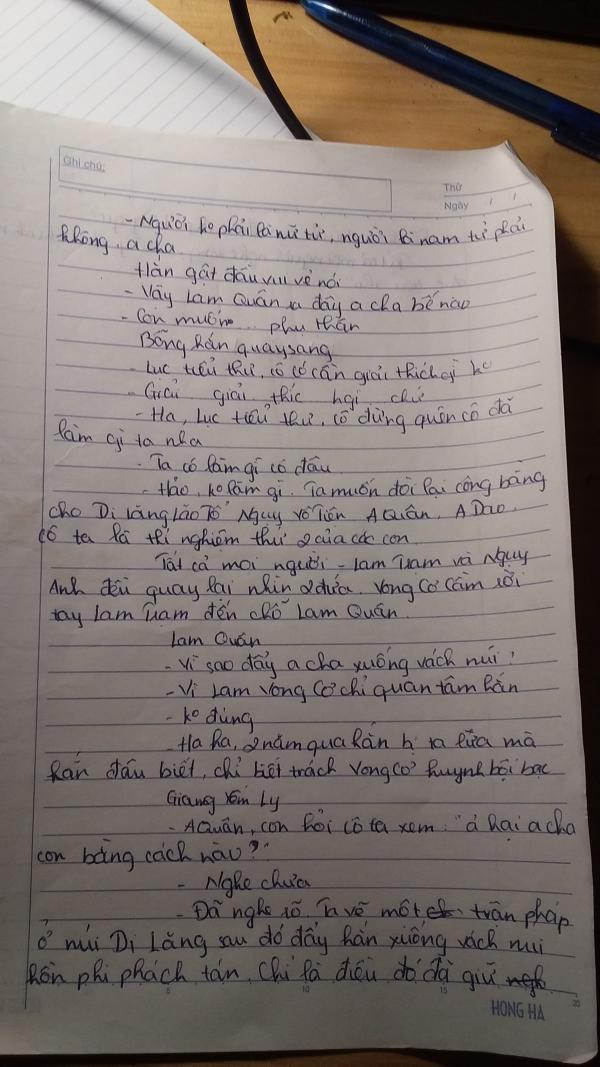 Ghi chú:
Thứ
Ngày / /
- Người ko phải là nữ tử, người là nam tử phải
không. a cha
Hắn gật đầu vui vẻ nói
- Vậy Lam Quân ra đây a cha bế nào
- Con muốn... phụ thân
Bỗng hắn quay sang
- Lục tiểu thư, cô có cần giải thích gì ko
- Giải giải thíc hgì chứ
- Ha, Lục tiểu thư, cô đừng quên cô đã
làm gì ta nha
- Ta có làm gì có đâu
- Hảo, ko làm gì. Ta muốn đòi lại công bằng
cho Di Lăng Lão Tổ Ngụy Vô Tiện. A Quân, A Dao.
Cô ta là thí nghiệm thứ 2 của các con
Tất cả mọi người - Lam Trạm và Ngụy
Anh đều quay lại nhìn 2 đứa. Vong Cơ cầm rồi
tay Lam Trạm đến chỗ Lam Quân.
Lam Quân
- Vì sao đẩy a cha xuống vách núi?
- Vì Lam Vong Cơ chỉ quan tâm hắn
- ko đúng
- Ha ha, 2 năm qua hắn bị ta lừa mà
hắn đâu biết, chỉ biết trách Vong Cơ huynh bội bạc
Giang Yếm Ly
- A Quân, con hỏi cô ta xem: "ả hại a cha
con bằng cách nào?"
- Nghe chưa
- Đã nghe rõ. Ta vẽ một trận pháp
ở núi Di Lăng sau đó đẩy hắn xuống vách núi
hồn phi phách tán. Chỉ là điều đó đã giữ
5 10 15 20
HONG HA